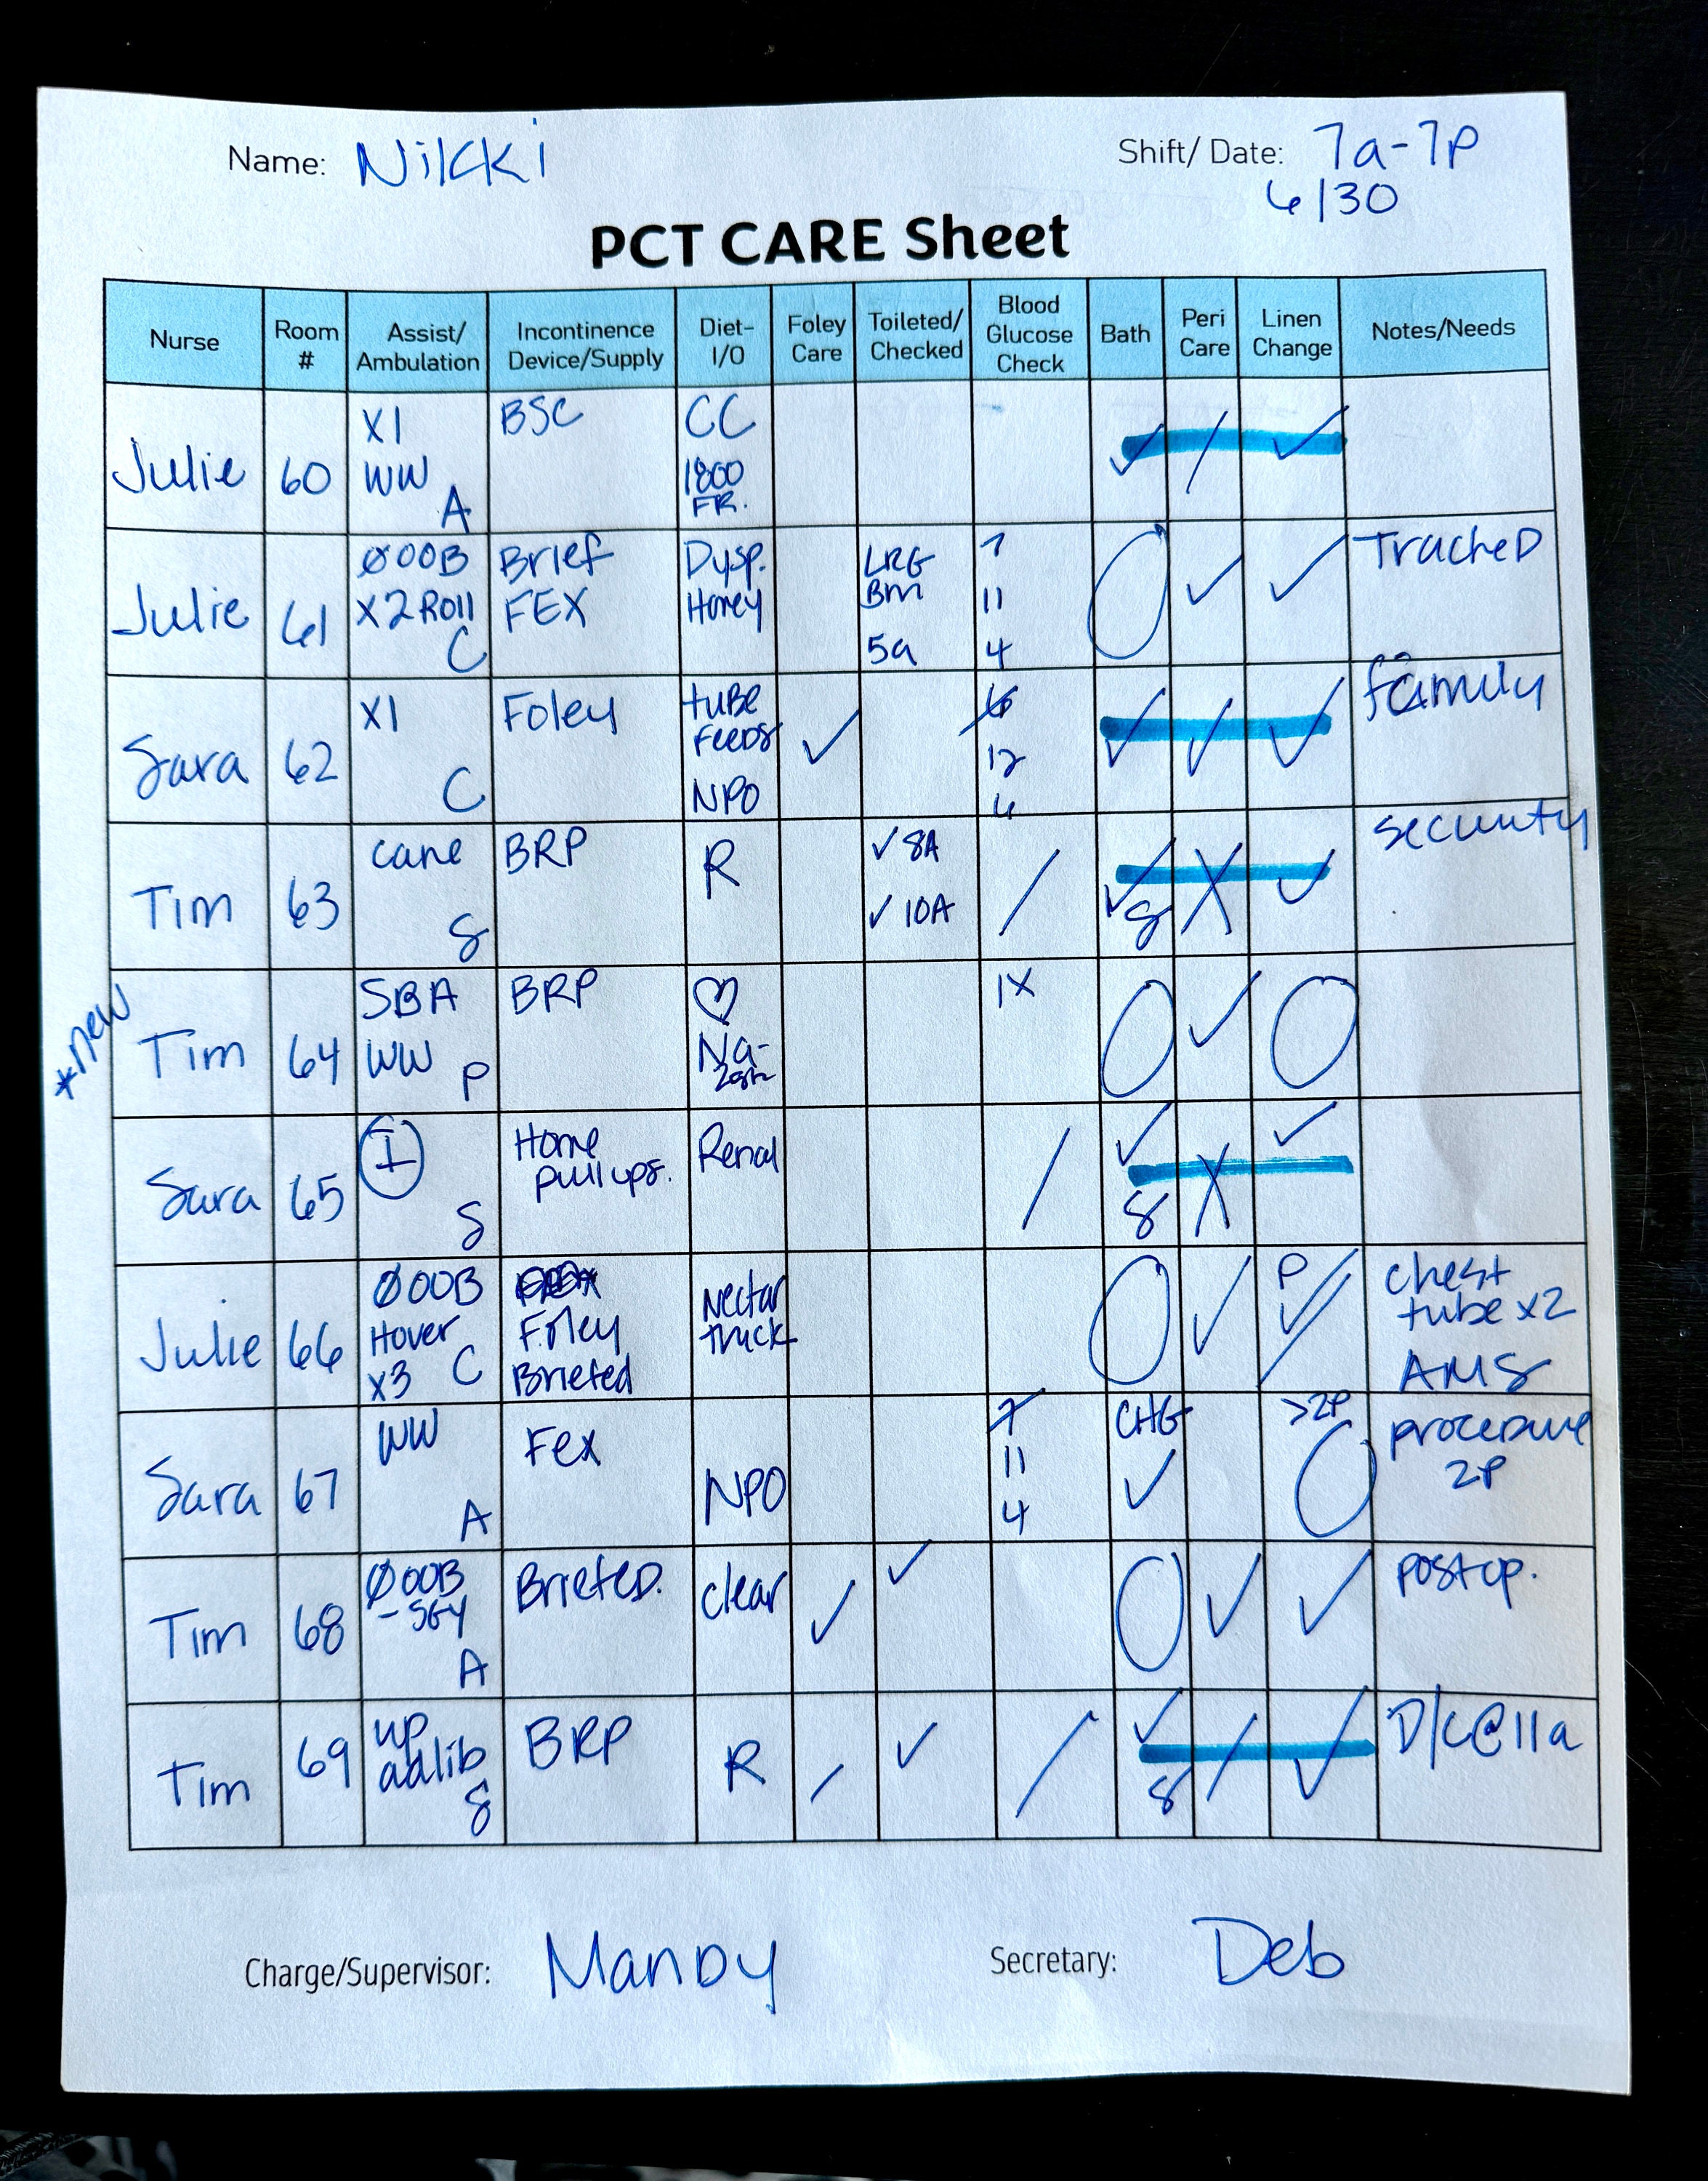 Name: Nikki
Shift/ Date: 7a-7p
6/30
PCT CARE Sheet
Nurse
Room #
Assist/ Ambulation
Incontinence Device/Supply
Diet- I/O
Foley Care
Toileted/ Checked
Blood Glucose Check
Bath
Peri Care
Linen Change
Notes/Needs
Julie
60
X1
WW
A
BSC
CC
1800
FR.
✓
/
✓
Julie
61
ØOOB
X2 Roll
C
Brief
FEX
Dysp.
Honey
LRG
Bm
5a
7
11
4
O
✓
✓
TracheD
Sara
62
X1
C
Foley
tube
FeeDs
NPO
✓
6
12
6
✓
✓
✓
family
Tim
63
cane
S
BRP
R
✓ 8A
✓ 10A
/
✓
S
X
✓
security
*new
Tim
64
SBA
WW
P
BRP
♡
Na-
2gm
1X
O
✓
O
Sara
65
I
S
Home
pull ups.
Renal
/
✓
S
X
✓
Julie
66
ØOOB
Hover
x3 C
Foley
Briefed
Nectar
thick
O
✓
P
✓
/
chest
tube x2
AMS
Sara
67
WW
A
Fex
NPO
7
11
4
CHG
✓
>2P
O
proceDure
2P
Tim
68
ØOOB
-SGY
A
BriefeD.
clear
✓
✓
O
✓
✓
postop.
Tim
69
up
adlib
S
BRP
R
/
✓
/
✓
S
/
✓
D/c@11a
Charge/Supervisor: ManDy
Secretary: Deb